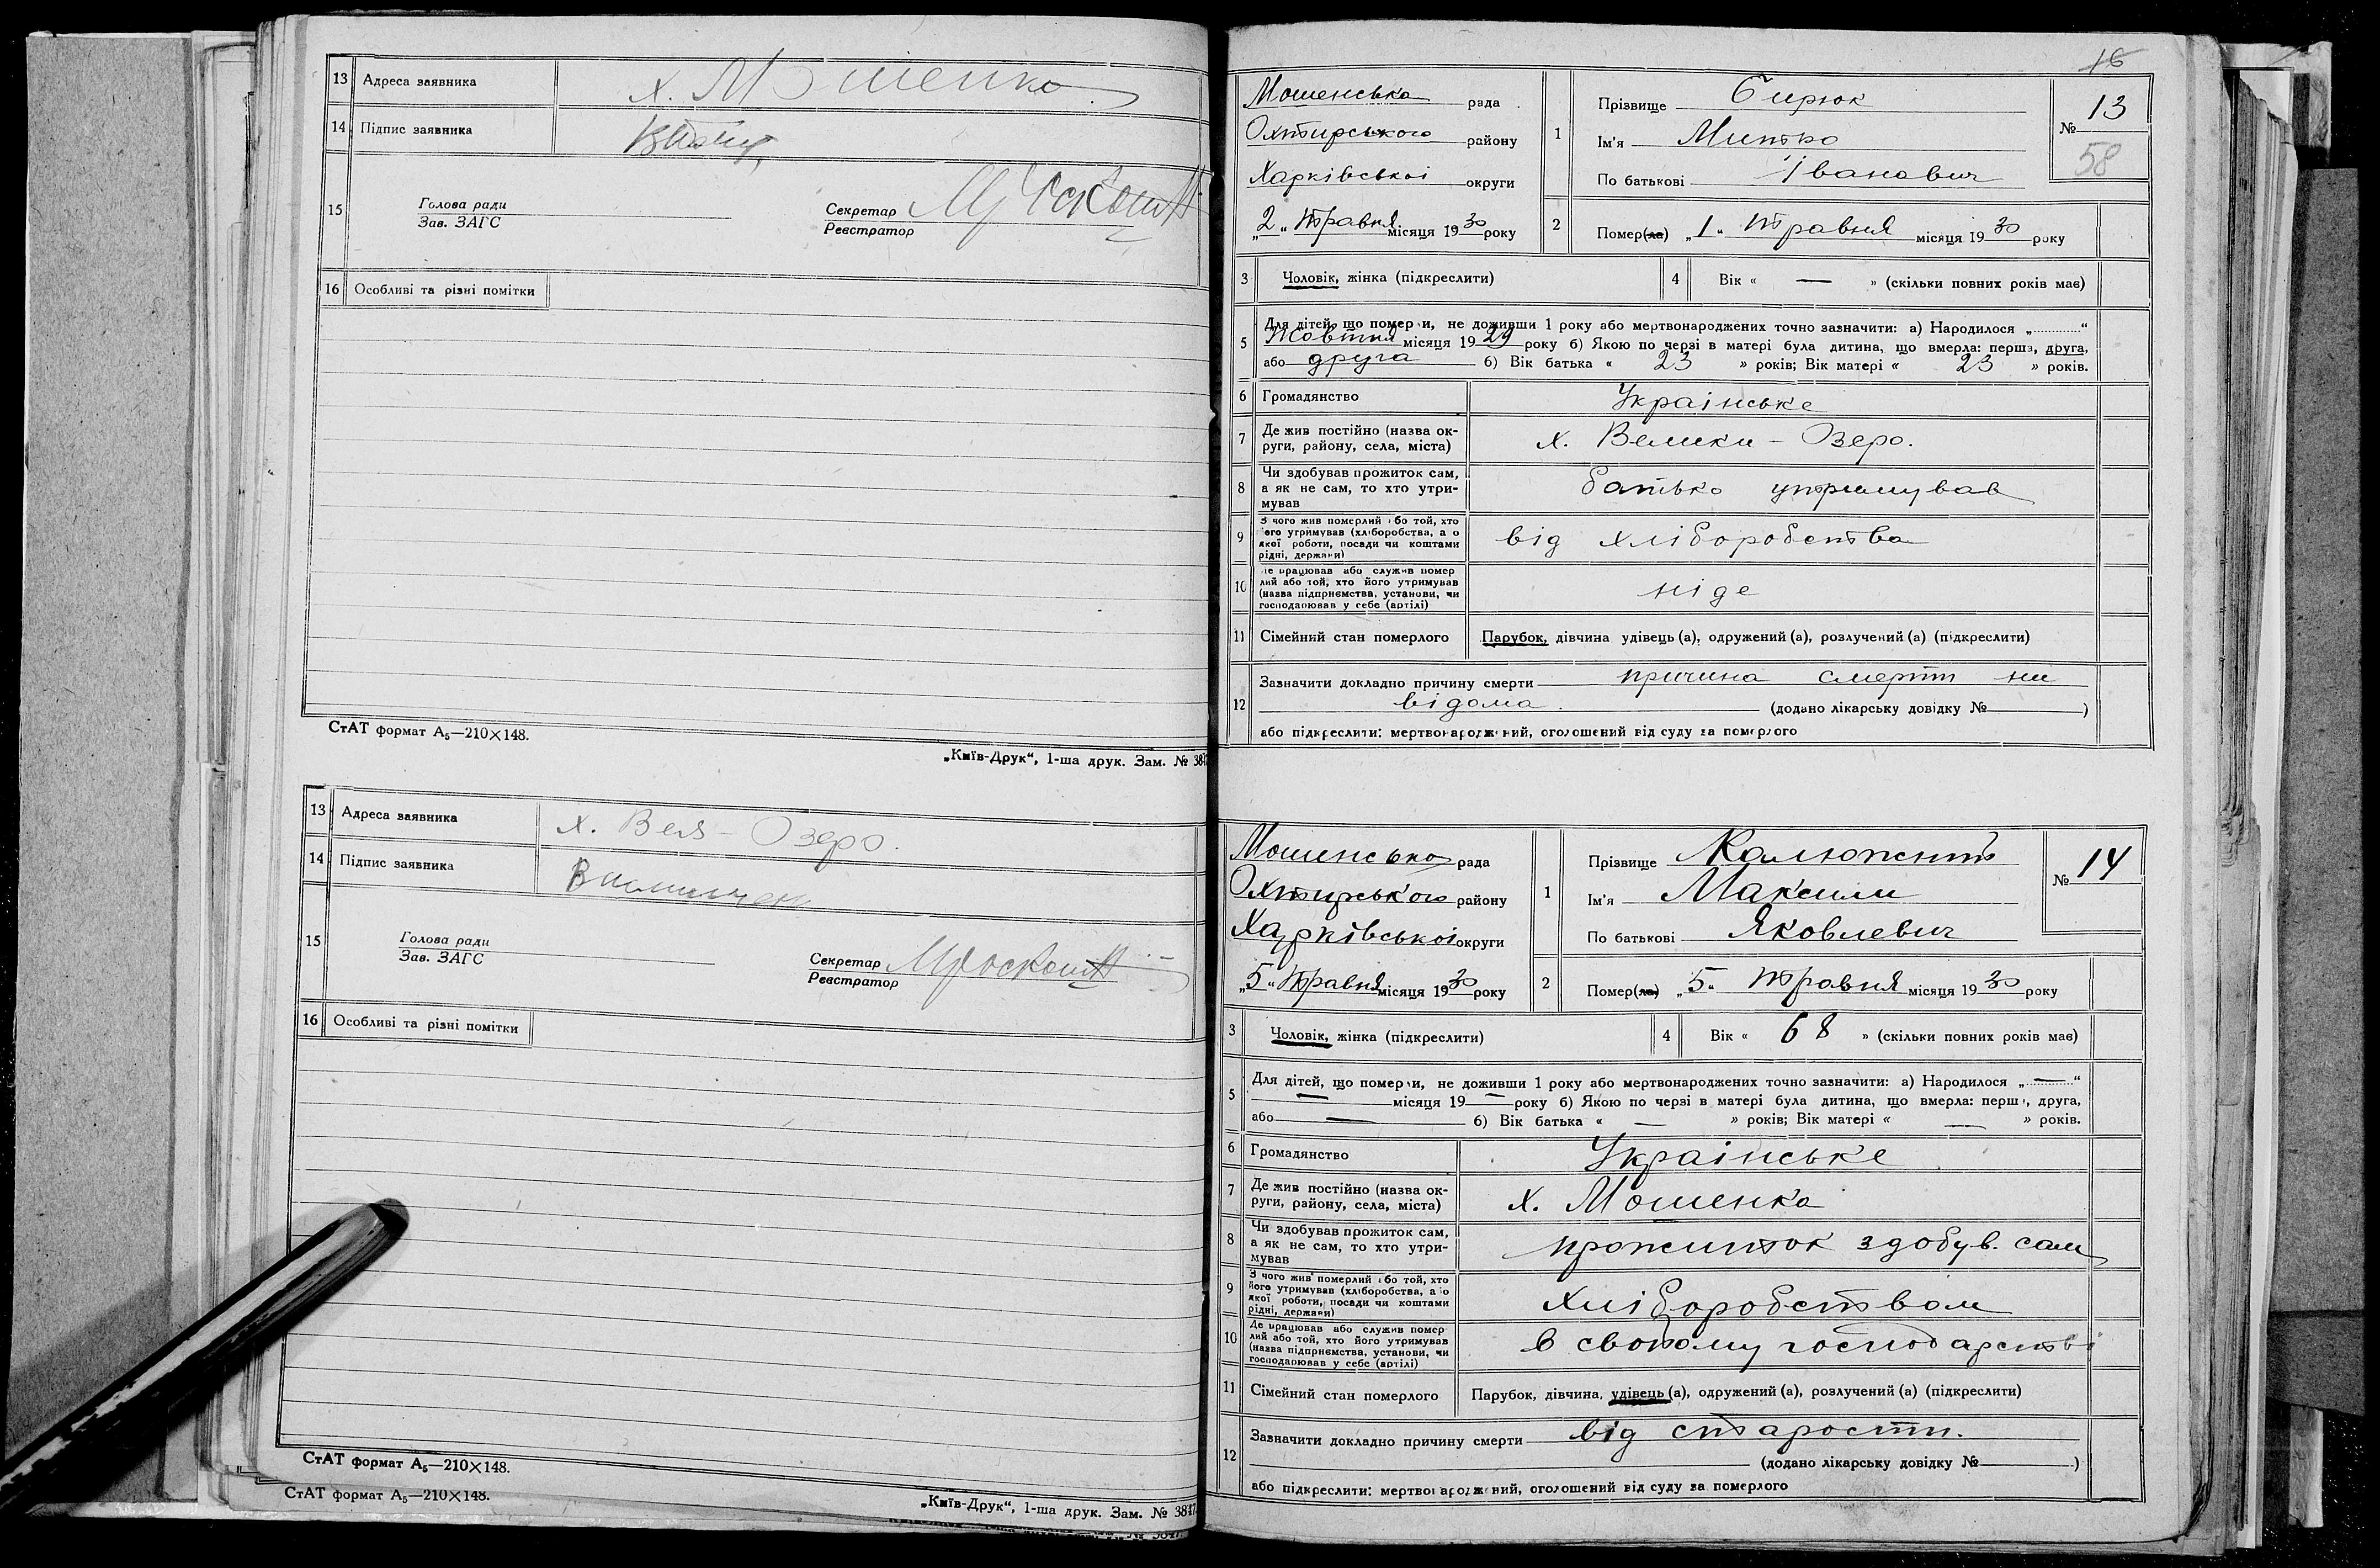 13 Адреса заявника х. Мошенка
14 Підпис заявника
15 Голова ради
Зав. ЗАГС
Секретар
Реєстратор
16 Особливі та різні помітки
СтАТ формат А5—210×148.
„Київ-Друк“, 1-ша друк. Зам. № 3847
13 Адреса заявника х. Вел-Озеро.
14 Підпис заявника
15 Голова ради
Зав. ЗАГС
Секретар
Реєстратор
16 Особливі та різні помітки
СтАТ формат А5—210×148.
СтАТ формат А5—210×148.
„Київ-Друк“, 1-ша друк. Зам. № 3847
Мошенська рада
Охтирського району
Харківськоі округи
„2“ Травня місяця 1930 року
1 Прізвище Бирюк
Ім'я Митько
По батькові Іванович
№ 13
58
2 Помер(ла) „1“ Травня місяця 1930 року
3 Чоловік, жінка (підкреслити)
4 Вік « — » (скільки повних років має)
5 Для дітей, що померли, не доживши 1 року або мертвонароджених точно зазначити: а) Народилося „............“
Жовтня місяця 1929 року б) Якою по черзі в матері була дитина, що вмерла: перша, друга,
або друга б) Вік батька « 23 » років; Вік матері « 23 » років.
6 Громадянство Украінське
7 Де жив постійно (назва ок-
руги, району, села, міста) х. Велики-Озеро.
8 Чи здобував прожиток сам,
а як не сам, то хто утри-
мував батько утримував
9 З чого жив померлий або той, хто
його утримував (хліборобства, або
якої роботи, посади чи коштами
рідні, держави) від хліборобства
10 Де працював або служив помер
лий або той, хто його утримував
(назва підприємства, установи, чи
господарював у себе (артілі) ніде
11 Сімейний стан померлого Парубок, дівчина удівець (а), одружений (а), розлучений (а) (підкреслити)
12 Зазначити докладно причину смерти причина смерти ни
відома. (додано лікарську довідку №)
або підкреслити: мертвонароджений, оголошений від суду за померлого
Мошенська рада
Охтирського району
Харківськоі округи
„5“ Травня місяця 1930 року
1 Прізвище
Ім'я Максим
По батькові Яковлевич
№ 14
2 Помер(ла) „5“ Травня місяця 1930 року
3 Чоловік, жінка (підкреслити)
4 Вік « 68 » (скільки повних років має)
5 Для дітей, що померли, не доживши 1 року або мертвонароджених точно зазначити: а) Народилося „—“
— місяця 19— року б) Якою по черзі в матері була дитина, що вмерла: перша, друга,
або — б) Вік батька « — » років; Вік матері « — » років.
6 Громадянство Украінське
7 Де жив постійно (назва ок-
руги, району, села, міста) х. Мошенка
8 Чи здобував прожиток сам,
а як не сам, то хто утри-
мував прожиток здобув. сам
9 З чого жив померлий або той, хто
його утримував (хліборобства, або
якої роботи, посади чи коштами
рідні, держави) хліборобством
10 Де працював або служив помер
лий або той, хто його утримував
(назва підприємства, установи, чи
господарював у себе (артілі) в свойому господарстві
11 Сімейний стан померлого Парубок, дівчина, удівець (а), одружений (а), розлучений (а) (підкреслити)
12 Зазначити докладно причину смерти від старости.
(додано лікарську довідку №)
або підкреслити: мертвонароджений, оголошений від суду за померлого